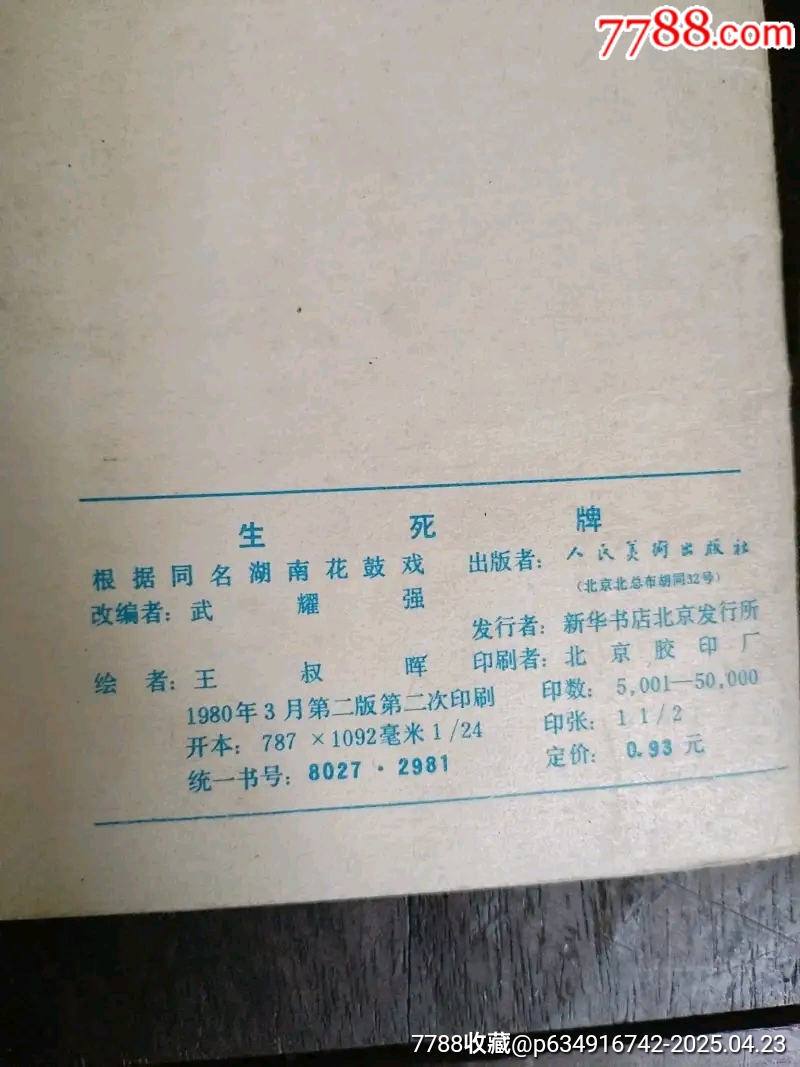 7788.com
生死牌
根据同名湖南花鼓戏
改编者：武耀强
绘者：王叔晖
1980年3月第二版第二次印刷
开本：787×1092毫米1/24
统一书号：8027·2981
出版者：人民美术出版社
（北京北总布胡同32号）
发行者：新华书店北京发行所
印刷者：北京胶印厂
印数：5,001—50,000
印张：1 1/2
定价：0.93元
7788收藏@p634916742-2025.04.23